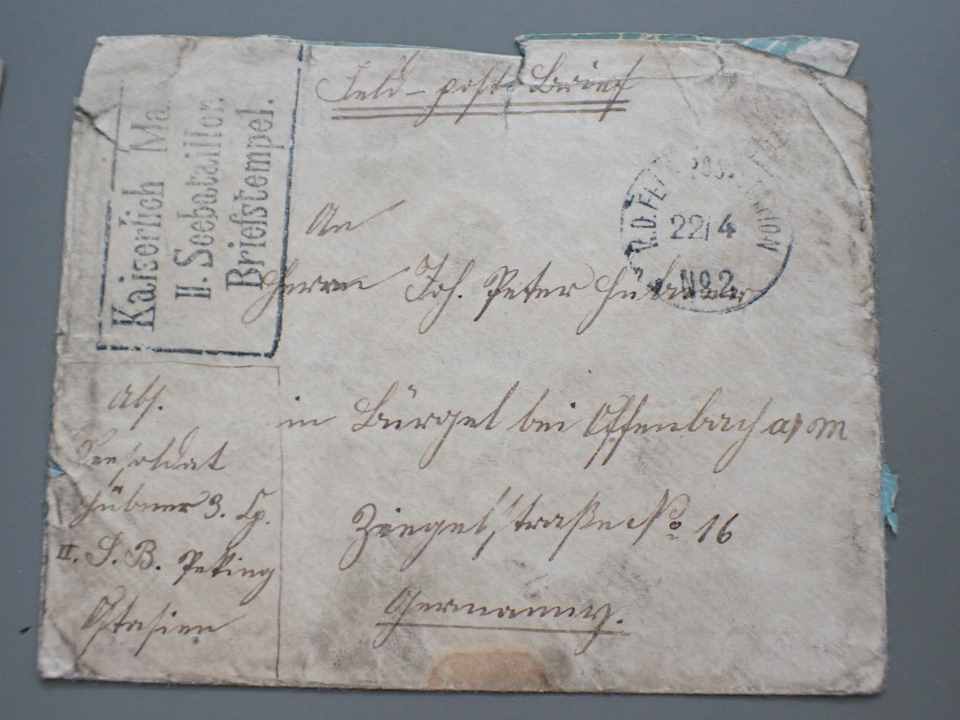 Kaiserlich Ma
II. Seebataillon
Briefstempel.
Feld-post-Brief
22/4
No 2
An
Herrn Joh. Peter Hübner
in Bürgel bei Offenbach a/M
Ziegelstraße No 16
Germanny.
Abs.
Seesoldat
Hübner 3. Cp.
II. S. B. Peking
Ostasien